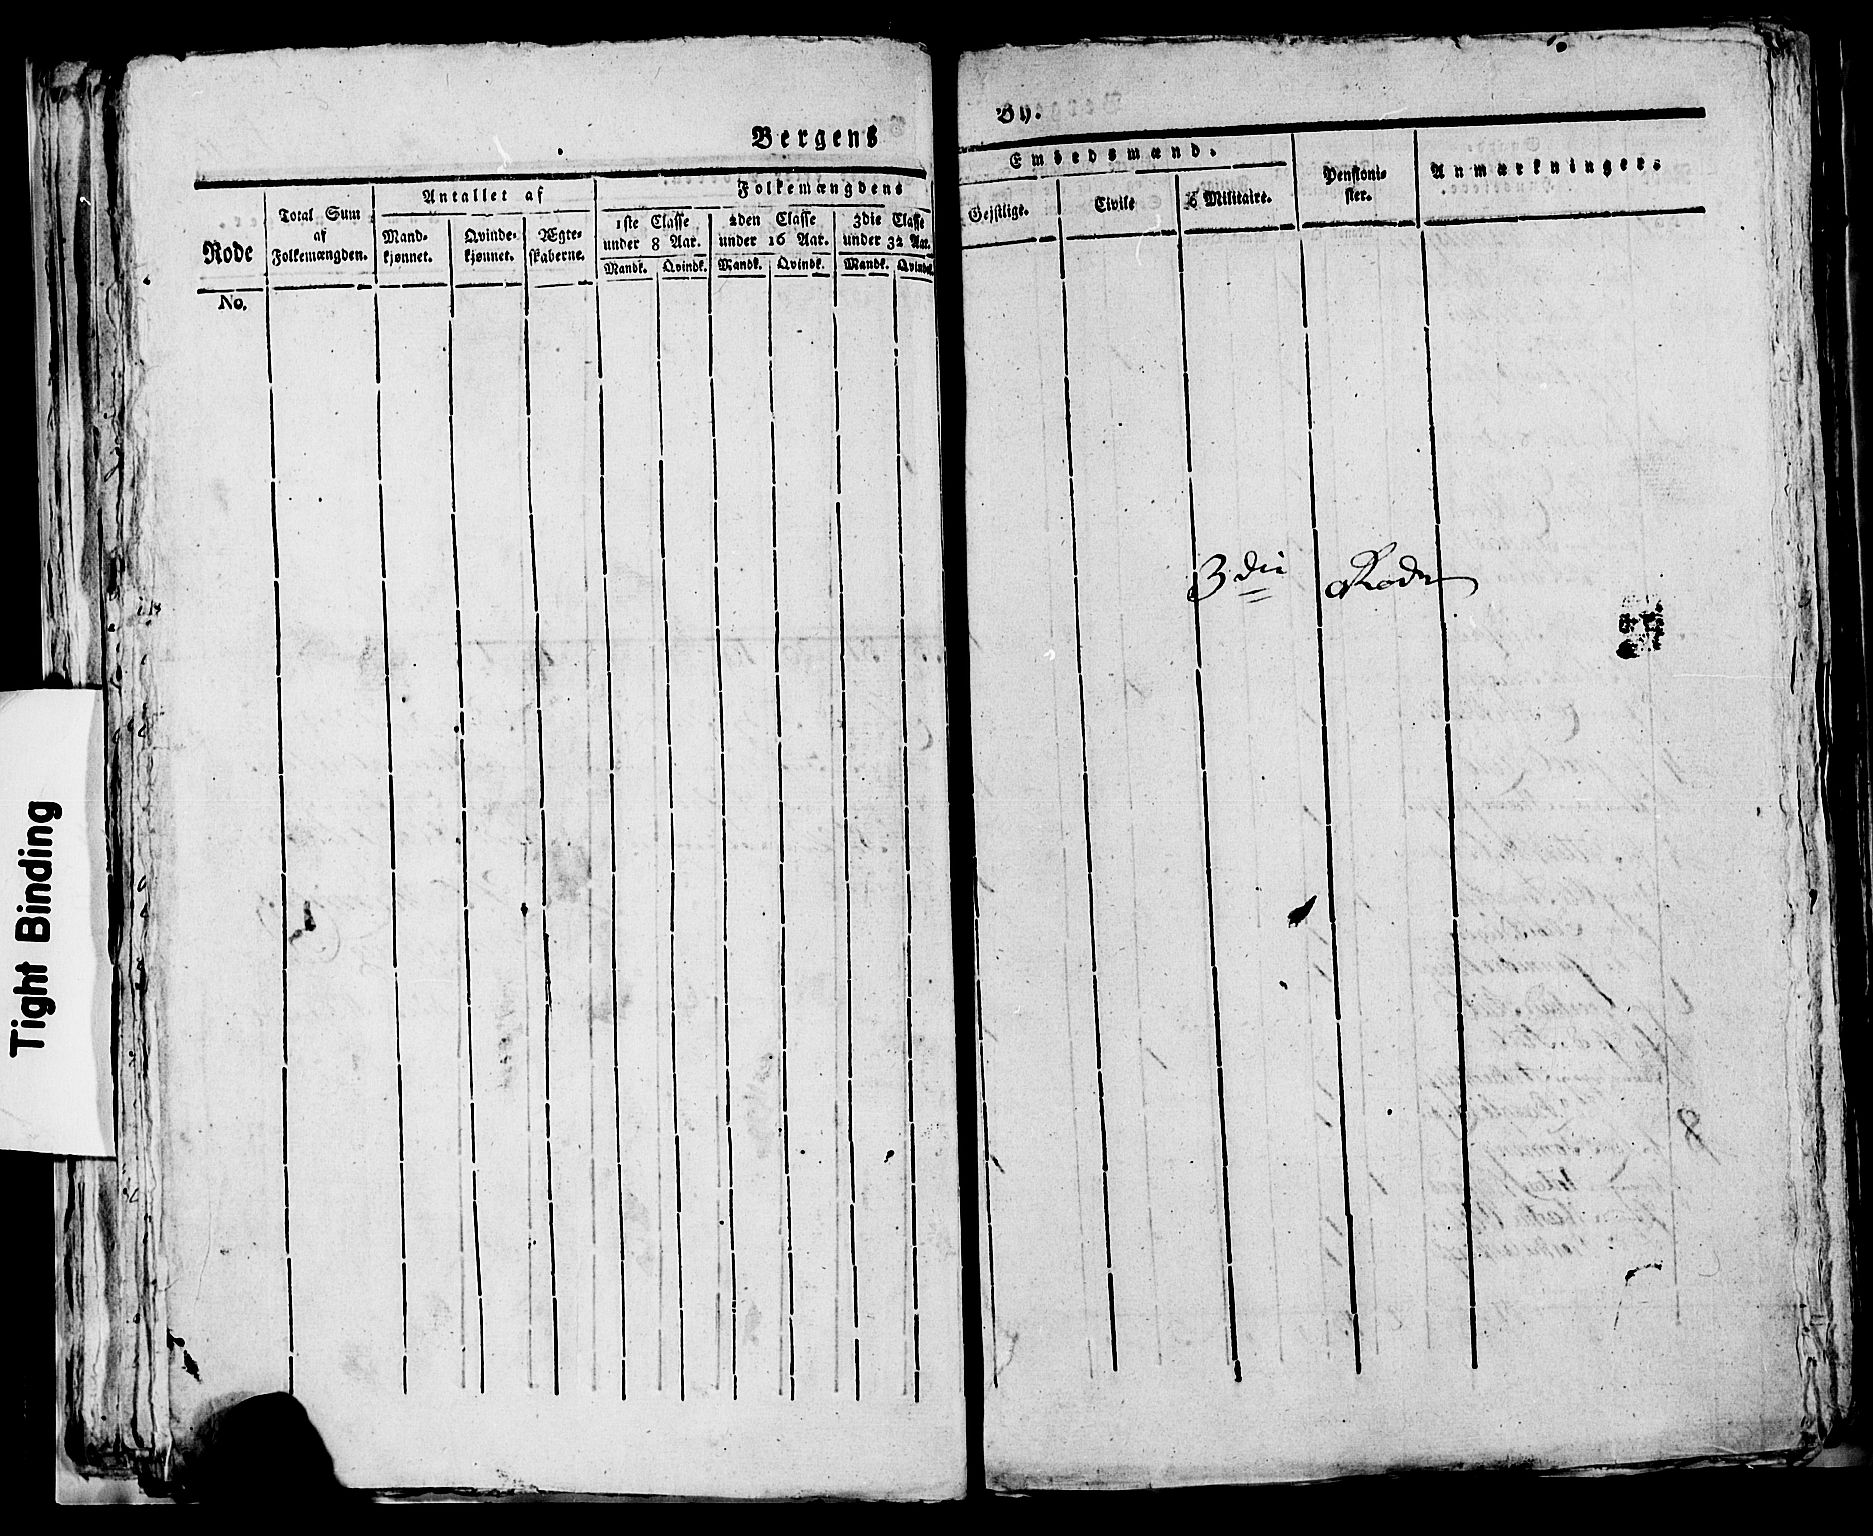 Bergens
Rode
Total Sum
af
Folkemængden.
Antallet af
Mand-
kjønnet.
Qvinde-
kjønnet.
Ægte-
skaberne.
Folkemængdens
1ste Classe
under 8 Aar.
2den Classe
under 16 Aar.
3die Classe
under 32 Aar.
Mandk. Qvindk. Mandk. Qvindk. Mandk. Qvindk.
No.
By.
Embedsmænd.
Gejstlige.
Civile
Militaire.
Pensioni-
ster.
Anmærkninger.
3die Rode
Tight Binding